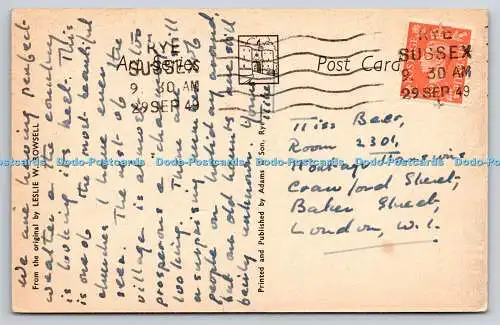 We are having perfect
weather & the country
is looking its best. This
is one of the most beautiful
churches I have ever
seen. The most of the
village is almost too
prosperous & "charming"
looking. There are still
a surprising number of
people on holiday around,
but our old haunts are still
being unknown.
From the original by LESLIE W. LOWSELL
Art Series
Post Card
RYE
SUSSEX
9 30 AM
29 SEP 49
RYE
SUSSEX
9 30 AM
29 SEP 49
Printed and Published by Adams & Son, Rye
Miss Beer,
Room 2301,
Montagu Mansions
Crawford Street,
Baker Street,
London, W.1.
Dodo-Postcards Dodo-Postcards Dodo-Postcards Dodo-Postcards Dodo-Postcards Dodo-Postcards